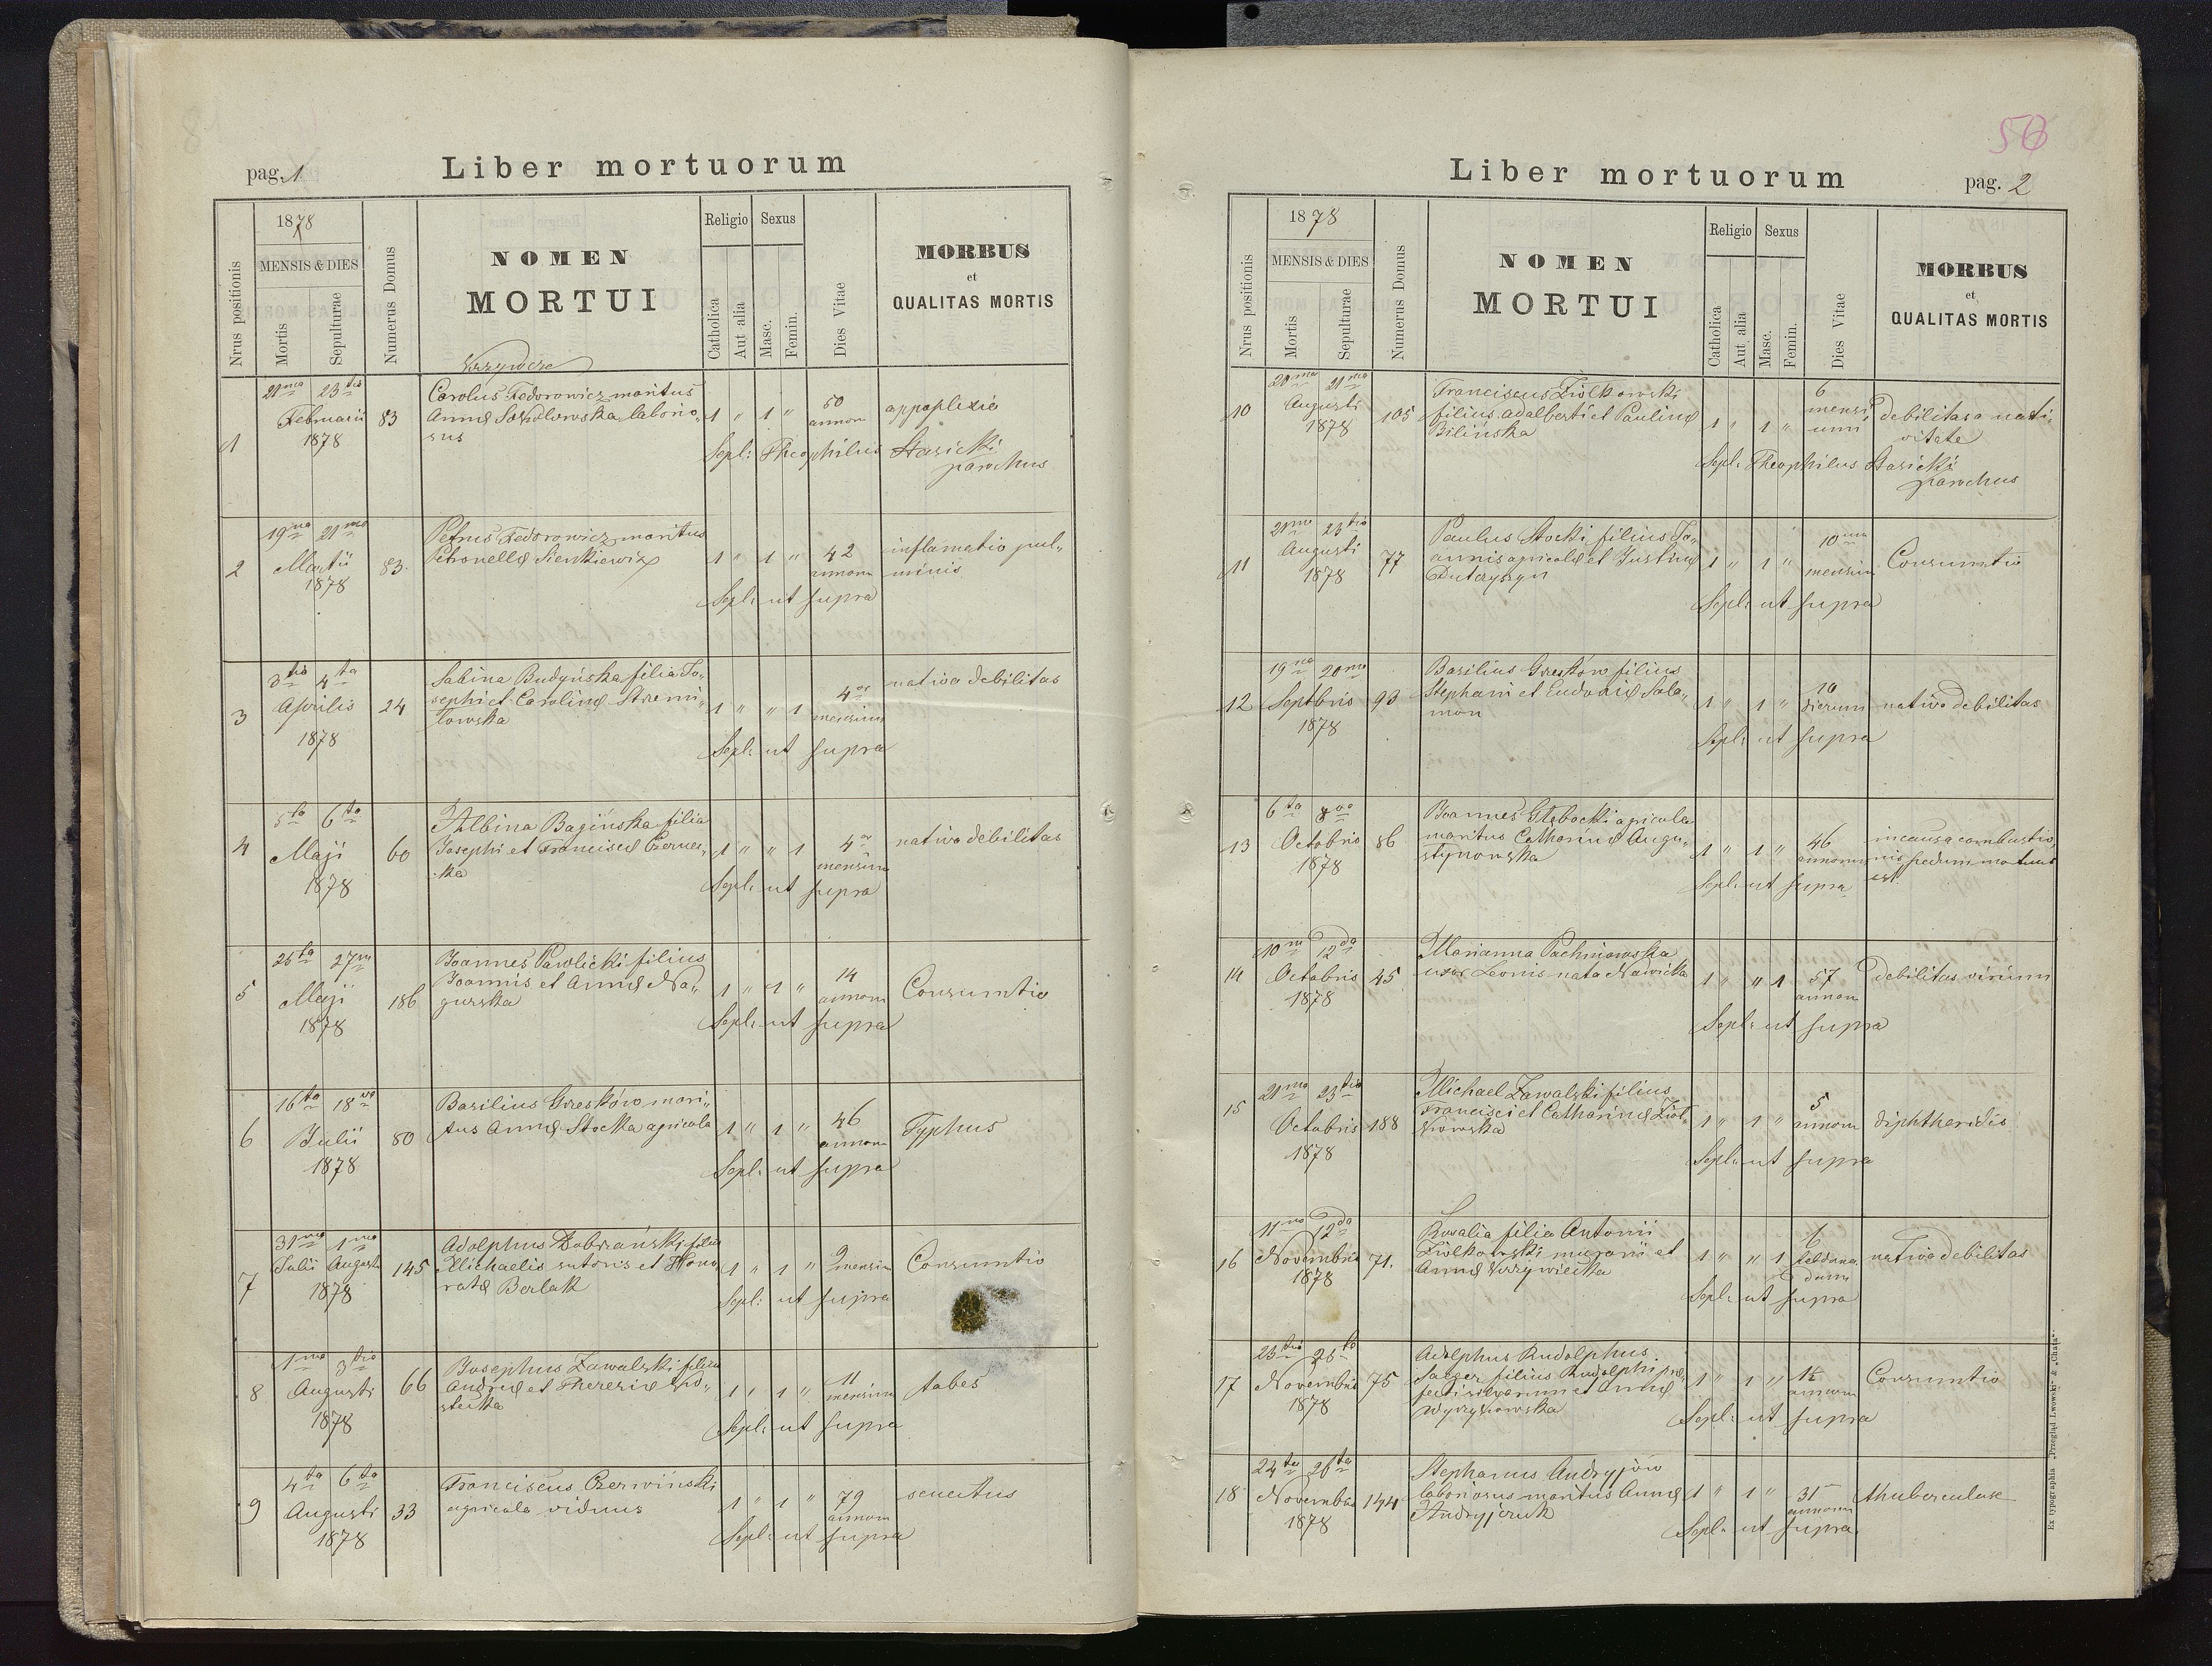 pag. 1
Liber mortuorum
Nrus positionis
1878
MENSIS & DIES
Mortis
Sepulturae
Numerus Domus
NOMEN
MORTUI
Krzywcze
Religio
Catholica
Aut alia
Sexus
Masc.
Femin.
Dies Vitae
MORBUS
et
QUALITAS MORTIS
1
21ma 23tia
Februarii
1878
83
Carolus Fedorowicz maritus
Annæ Sokołowska laborio„
sus
1 " 1 "
50
annorum
appoplexia
Sepl: Theophilus Stasicki
parochus
2
19na 21ma
Martii
1878
83.
Petrus Fedorowicz maritus
Petronellæ Sienkiewicz
1 " 1 "
42
annorum
inflamatio pul„
minis
Sepl: ut supra
3
3tia 4ta
Aprilis
1878
24
Sabina Budyńska filia Jo„
sephi et Carolinæ Stremi„
łowska
1 " " 1
4or
mensium
nativa debilitas
Sepl: ut supra
4
5ta 6ta
Maji
1878
60
Albina Bagińska filia
Josephi et Franciscæ Czernec„
ka
1 " " 1
4or
mensium
nativa debilitas
Sepl: ut supra
5
26ta 27ma
Maji
1878
186
Joannes Pawlicki filius
Joannis et Annæ Na„
gurska
1 " 1 "
14
annorum
Consumtio
Sepl: ut supra
6
16ta 18va
Julii
1878
80
Basilius Greśków mari„
tus Annæ Stocka agricola
1 " 1 "
46
annorum
Typhus
Sepl: ut supra
7
31ma 1ma
Julii Augusti
1878
145
Adolphus Dobrzański filius
Michaelis sutoris et Hono„
ratæ Berlak
1 " 1 "
9 mensium
Consumtio
Sepl: ut supra
8
1ma 3tia
Augusti
1878
66
Josephus Zawalski filius
Andreæ et Theresiæ Ko„
stecka
1 " 1 "
11
mensium
tabes
Sepl: ut supra
9
4ta 6ta
Augusti
1878
33
Franciscus Czerwiński
agricola viduus
1 " 1 "
79
annorum
senectus
Sepl: ut supra
56
Liber mortuorum
pag. 2
Nrus positionis
1878
MENSIS & DIES
Mortis
Sepulturae
Numerus Domus
NOMEN
MORTUI
Religio
Catholica
Aut alia
Sexus
Masc.
Femin.
Dies Vitae
MORBUS
et
QUALITAS MORTIS
10
20ma 21ma
Augusti
1878
105
Franciscus Ziółkowski
filius Adalberti et Paulinæ
Bilińska
1 " 1 "
6
mensi„
um
debilitas a nati„
vitate
Sepl: Theophilus Stasicki
parochus
11
21ma 23tia
Augusti
1878
77
Paulus Stocki filius Jo„
annis agricolæ et Justinæ
Dutczyszyn
1 " 1 "
10em
mensium
Consumtio
Sepl: ut supra
12
19na 20ma
Septbris
1878
93
Basilius Greśków filius
Stephani et Eudoxiæ Sala„
mon
1 " 1 "
10
dierum
nativa debilitas
Sepl: ut supra
13
6ta 8va
Octobris
1878
86
Joannes Głębocki agricola
maritus Catharinæ Augu„
stynowska
1 " 1 "
46
annorum
in causa combustio„
nis pedum mortuus
est.
Sepl: ut supra
14
10ma 12da
Octobris
1878
45
Marianna Pachniowska
uxor Leonis nata Nawicka
1 " " 1
57
annorum
debilitas virium
Sepl: ut supra
15
21ma 23tia
Octobris
1878
188
Michael Zawalski filius
Francisci et Catharinæ Ziół„
kowska
1 " 1 "
5
annorum
diphtheridis
Sepl: ut supra
16
11ma 12da
Novembris
1878
71.
Rosalia filia Antonii
Ziółkowski murarii et
Annæ Krzywiecka
1 " " 1
6
hebdoma„
dum
nativa debilitas
Sepl: ut supra
17
23tia 25ta
Novembris
1878
75
Adolphus Rudolphus
filius Rudolphi præ„
fecti silvarum et Annæ
1 " 1 "
annorum
Consumtio
Sepl: ut supra
18
24ta 26ta
Novembris
1878
144
Stephanus Andryjów
laboriosus maritus Annæ
Andryjczuk
1 " 1 "
31
annorum
thuberculosæ
Sepl: ut supra
Ex typographia „Przegląd Lwowski" & „Chata".